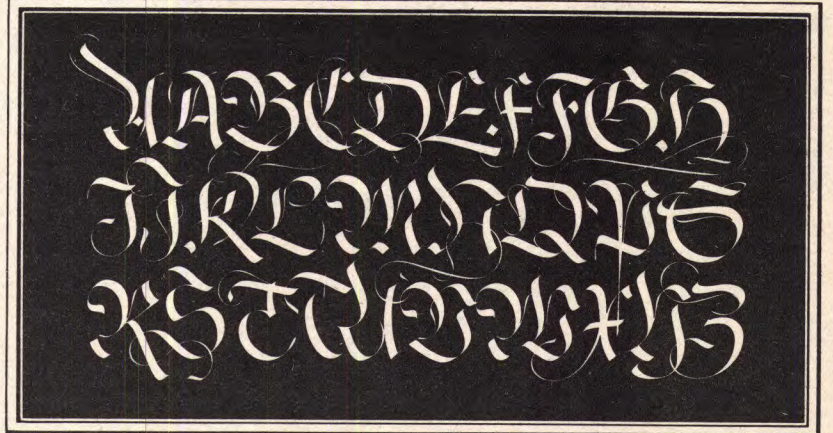 AABCDE.FFG.H
IJ.KLM.NOPQ
RSTTUVWXYZ